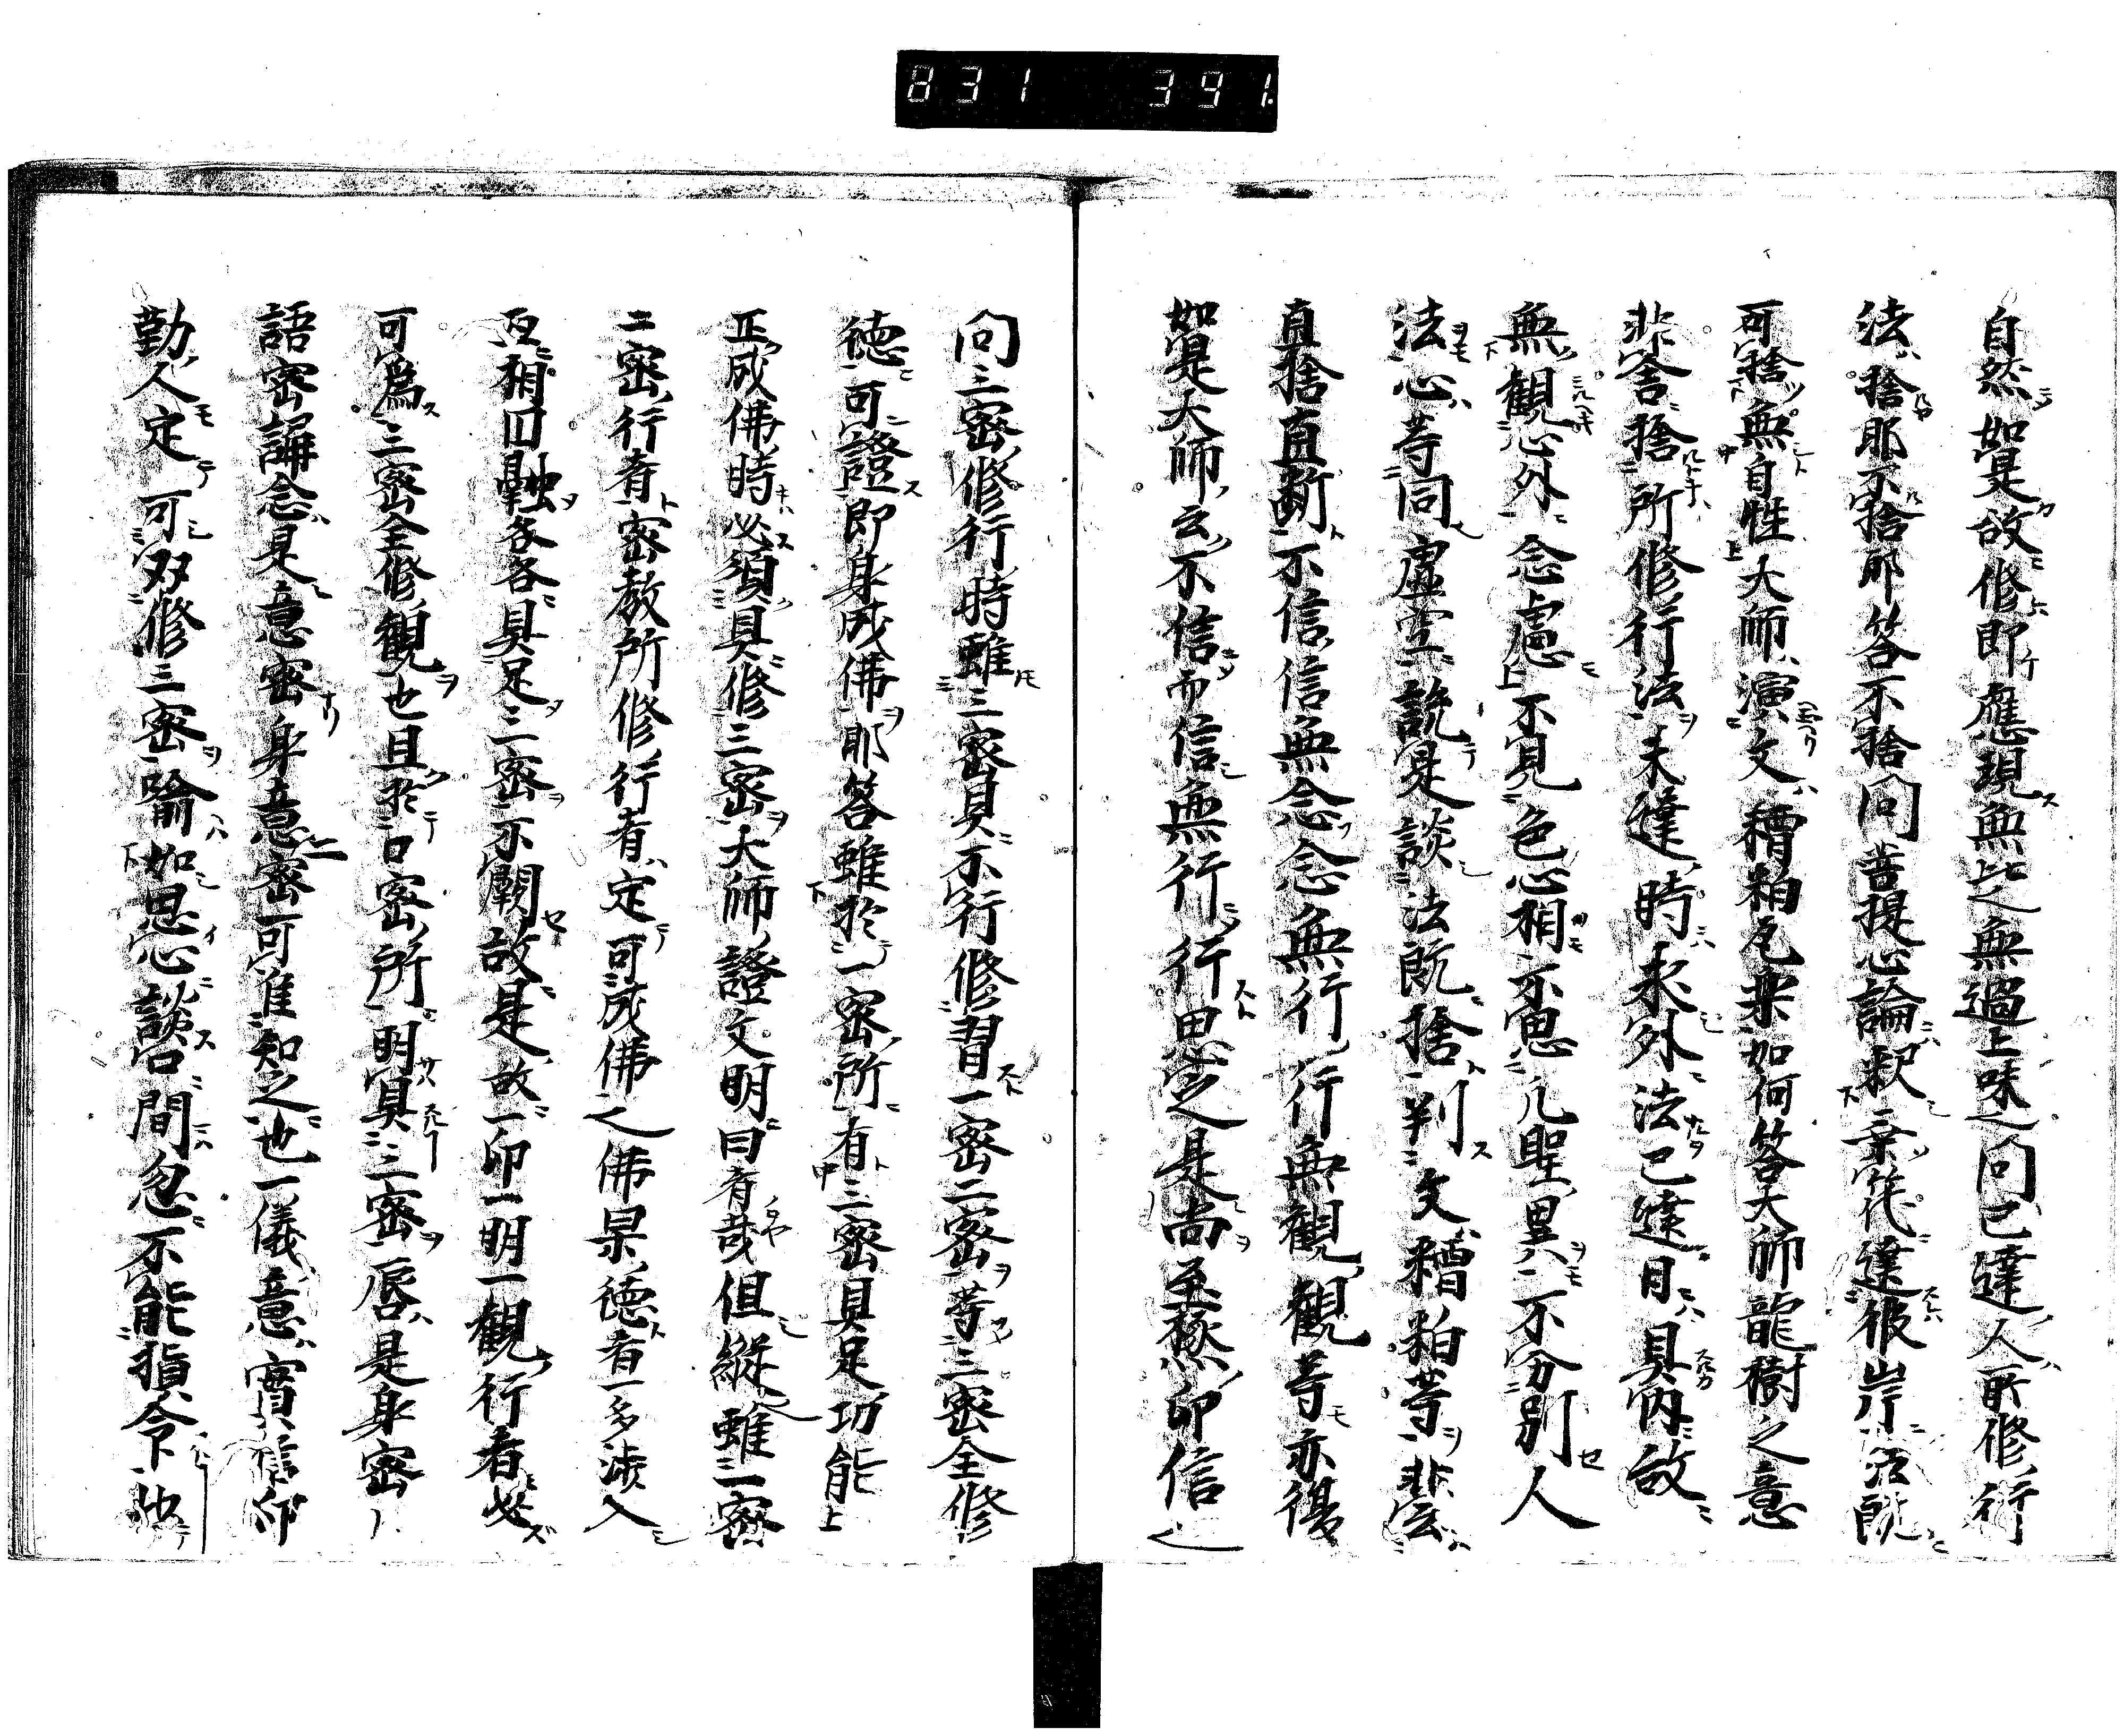 831 391
自然如是故修即應現無此之無過上味之問已達人所修行
法捨耶不捨耶答不捨問菩提心論釈云乗筏達彼岸法既
可捨無自性大師演文糟粕瓦礫如何答大師龍樹之意
非舍捨所修行法未達時求外法已達日具内故
無観心外念慮不見色心相不思凡聖異不分別人
法心等同虚空說是談法既捨判文糟粕等非云
直捨直断不信信無念念無行行無観観等亦復
如是大師云不信而信無行行思之是尚至極印信
問三密修行時雖三密具不行修習一密二密等三密全修
德可證即身成佛耶答雖於一密所有三密具足功能
正成佛時必須具修三密大師證文明曰有哉但縱雖一密
二密行者密教所修行者定可成佛之佛果德者一多渉入
互相囙融各各具足三密不闕故是故一印一明一観行者必
可為三密全修観也且於口密所明具三密唇是身密
語密誦念是意密身意密可准知之也一儀意實信仰
勤人定可双修三密喻如思心談口間忽不能損令他